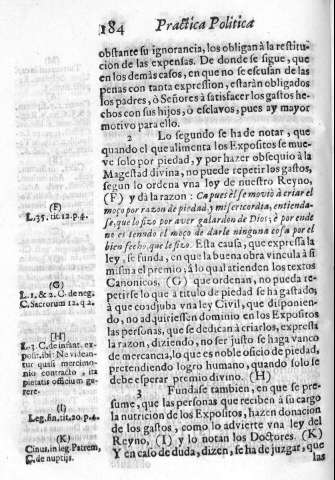 184 Practica Politica
obstante su ignorancia, los obligan à la restitu-
cion de las expensas. De donde se sigue, que
en los demàs casos, en que no se escusan de las
penas con tanta expression, estaràn obligados
los padres, ò Señores à satisfacer los gastos he-
chos con sus hijos, ò esclavos, pues ay mayor
motivo para ello.
2 Lo segundo se ha de notar, que
quando el que alimenta los Expositos se mue-
ve solo por piedad, y por hazer obsequio à la
Magestad divina, no puede repetir los gastos,
segun lo ordena vna ley de nuestro Reyno,
(F) y dà la razon: Ca pues èl se moviò à criar el
moço por razon de piedad, y misericordia, entienda-
se, que lo fizo por aver galardon de Dios; è por ende
no es tenudo el moço de darle ninguna cosa por el
bien fecho, que le fizo. Esta causa, que expressa la
ley, se funda, en que la buena obra vincula à si
misma el premio; à lo qual atienden los textos
Canonicos, (G) que ordenan, no pueda re-
petirse lo que à titulo de piedad se ha gastado,
à que coadjuba vna ley Civil, que disponien-
do, no adquiriessen dominio en los Expositos
las personas, que se dedican à criarlos, expressa
la razon, diziendo, no ser justo se haga vanco
de mercancia, lo que es noble oficio de piedad,
pretendiendo logro humano, quando solo se
debe esperar premio divino. (H)
3 Fundase tambien, en que se pre-
sume, que las personas que reciben à su cargo
la nutricion de los Expositos, hazen donacion
de los gastos, como lo advierte vna ley del
Reyno, (I) y lo notan los Doctores. (K)
Y en caso de duda, dizen, se ha de juzgar, que
las
(F)
L. 35. tit. 12. p. 4.
(G)
L. 1. & 2. C. de neg.
C. Sacrorum 12. q. 2.
(H)
L. 3. C. de infant. ex-
posit. ibi: Ne videan-
tur quasi mercimo-
nio contracto, ita
pietatis officium ge-
rere.
(I)
Leg. fin. tit. 20. p. 4.
(K)
Cinus, in leg. Patrem,
C. de nuptijs.